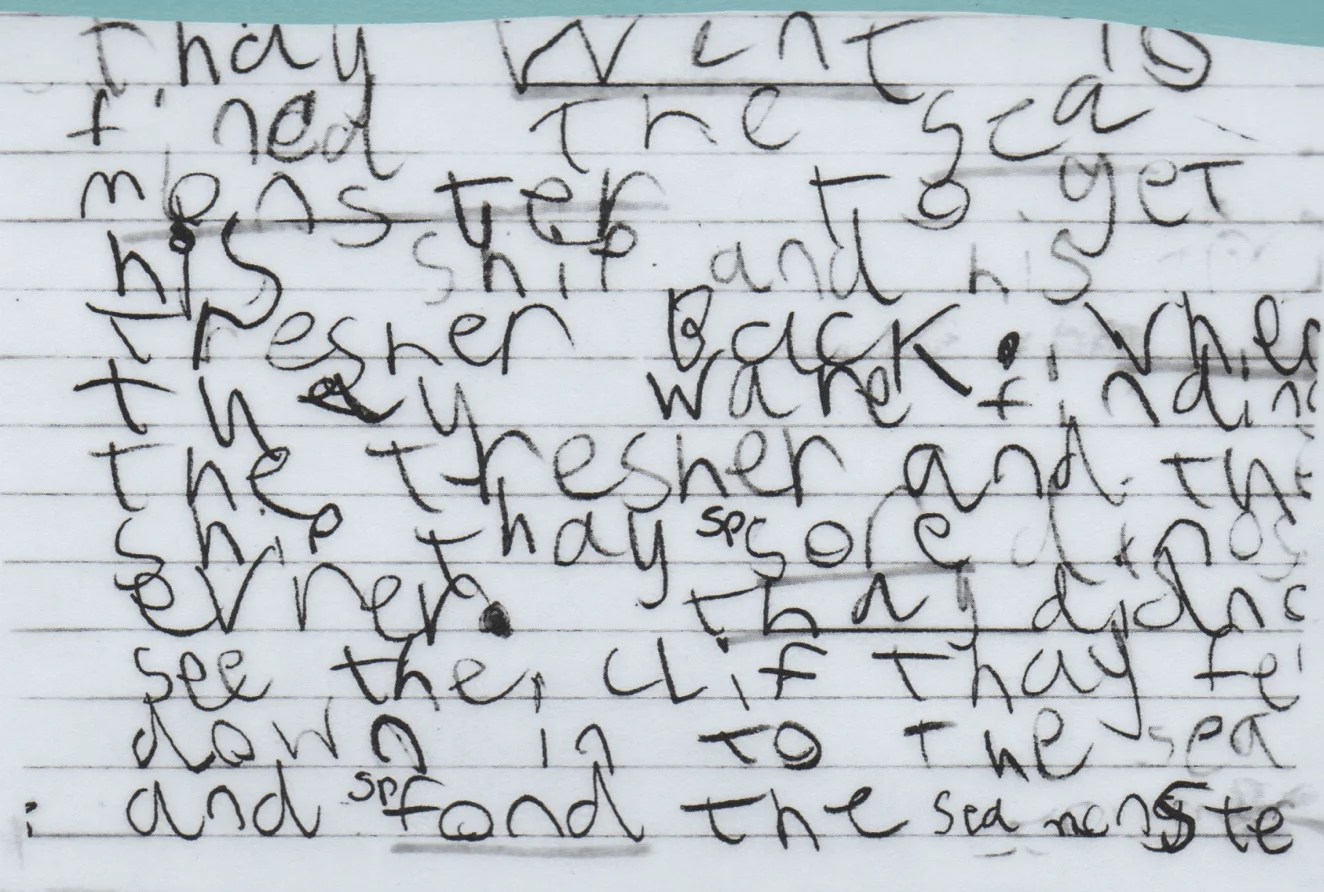 Thay Went to
fined the sea
monster to get
his ship and his
tresher Back. When
they ware finding
the tresher and the
ship thay sp sore dinos
erver. thay didn
see the clif Thay fe
down in to the sea
and sp fond the sea monste